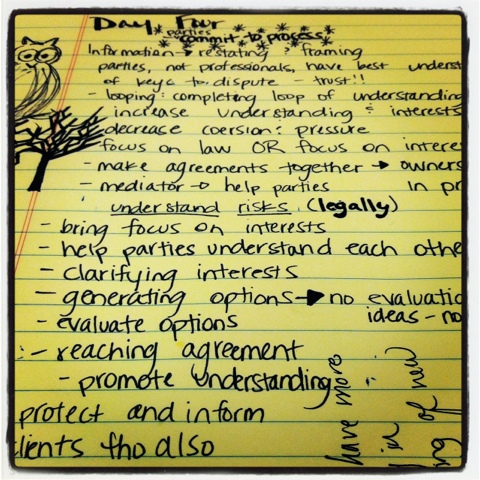 Day Four
parties
* commit to process *
Information → restating ? framing
parties, not professionals, have best underst
of keys to dispute - trust!!
- looping: completing loop of understanding
increase understanding : interests
decrease coersion : pressure
focus on law OR focus on intere
- make agreements together → owners
- mediator → help parties in pr
understand risks (legally)
- bring focus on interests
- help parties understand each othe
- clarifying interests
- generating options → no evaluatio
ideas - no
- evaluate options
- reaching agreement
- promote understanding
protect and inform
lients tho also
have more
of now
ng